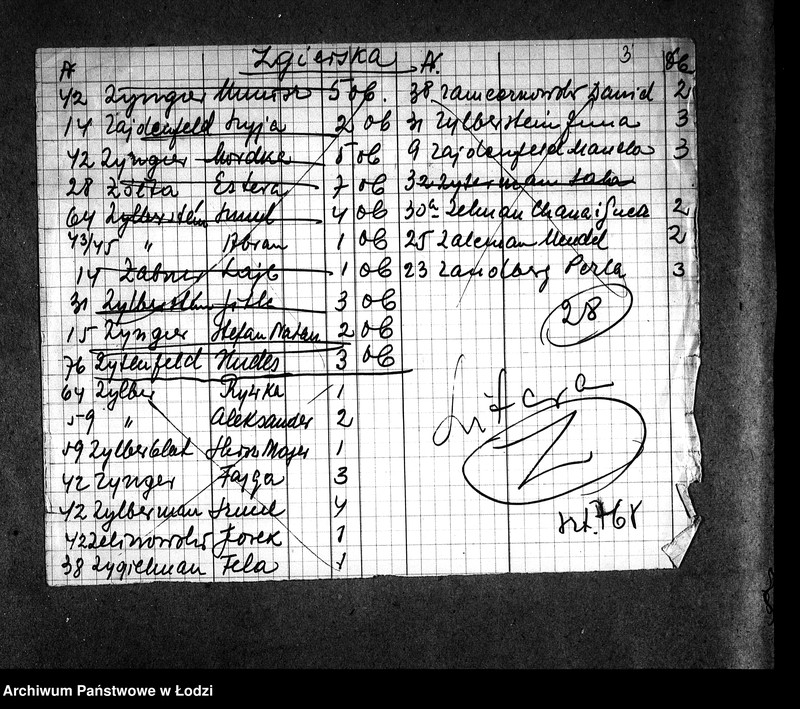 Zgierska
3
N
42 Zynger 5 ob.
14 Zajdenfeld Szyja 2 ob
42 Zynger Mordka 5 ob
28 Żółta Estera 7 ob
64 Zylberstein Szmul 4 ob
43/45 " Abram 1 ob
14 1 ob
31 Gitla 3 ob
15 Zynger Stefan Natan 2 ob
76 Zytenfeld Hudes 3 ob
64 Zylber Rywka 1
59 " Aleksander 2
59 Zylberblat Herz Majer 1
42 Zynger Fajga 3
42 Zylberman Szmul 4
42 Zelinowski Josek 1
38 Zygielman Fela 1
N. Ob
38 Dawid 2
31 Zylberstein 3
9 Zajdenfeld 3
32 Zyterman
30a Zelman 2
25 Zalcman Mendel 2
23 Zandberg Perla 3
28
Litera
Z
szt. 768
Archiwum Państwowe w Łodzi